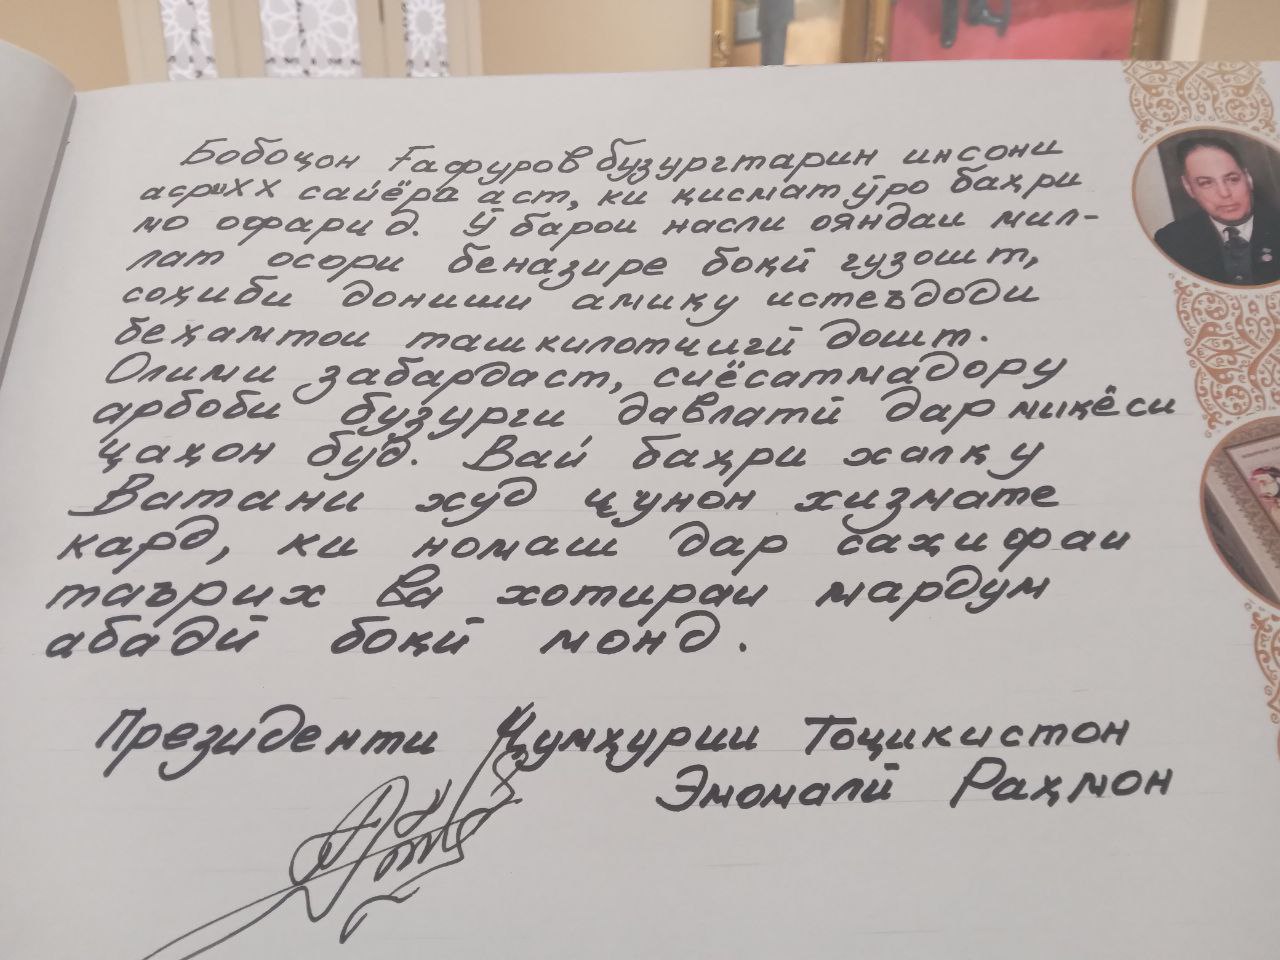 Бобоҷон Ғафуров бузургтарин инсони
асри XX сайёра аст, ки қисмат ӯро баҳри
мо офарид. Ӯ барои насли ояндаи мил-
лат осори беназире боқӣ гузошт,
соҳиби дониши амиқу истеъдоди
беҳамтои ташкилотчигӣ дошт.
Олими забардаст, сиёсатмадору
арбоби бузурги давлатӣ дар миқёси
ҷаҳон буд. Вай баҳри халқу
Ватани худ ҷунон хизмате
кард, ки номаш дар саҳифаи
таърих ва хотираи мардум
абадӣ боқӣ монд.
Президенти Ҷумҳурии Тоҷикистон
Эмомалӣ Раҳмон